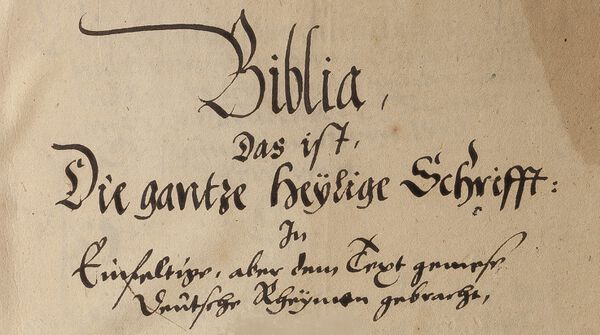 Biblia,
Das ist,
Die gantze Heÿlige Schrifft:
In
Einfeltige, aber dem Text gemese
Deütsche Rheÿmen gebracht,